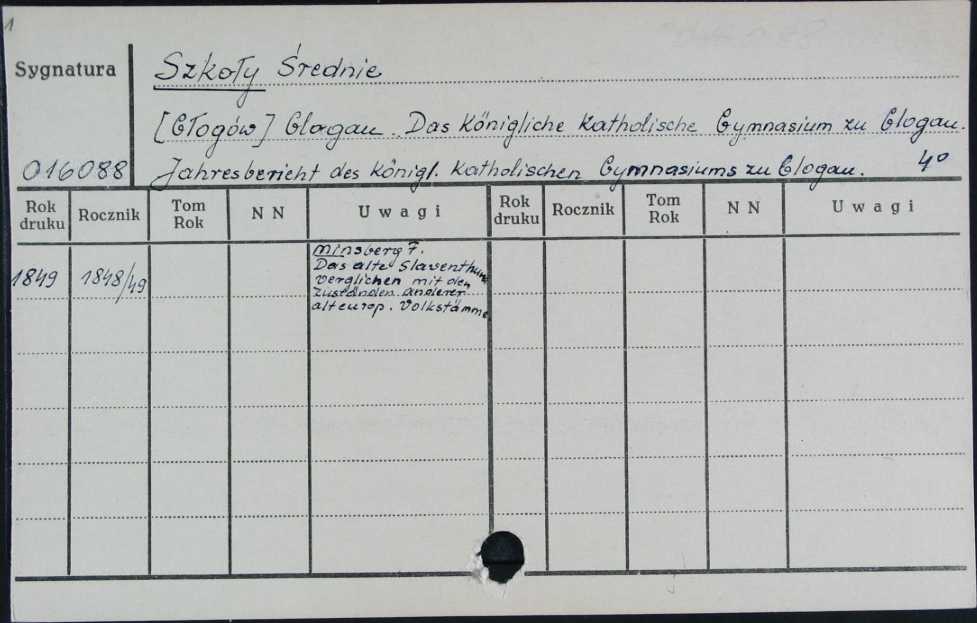 1
Sygnatura
Szkoły Średnie
[Głogów] Glogau. Das Königliche Katholische Gymnasium zu Glogau.
016088
Jahresbericht des Königl. Katholischen Gymnasiums zu Glogau. 4°
Rok druku Rocznik Tom Rok N N Uwagi Rok druku Rocznik Tom Rok N N Uwagi
1849 1848/49
Minsberg F.
Das alte Slaventhum
verglichen mit den
Zuständen anderer
alteurop. Volkstämme